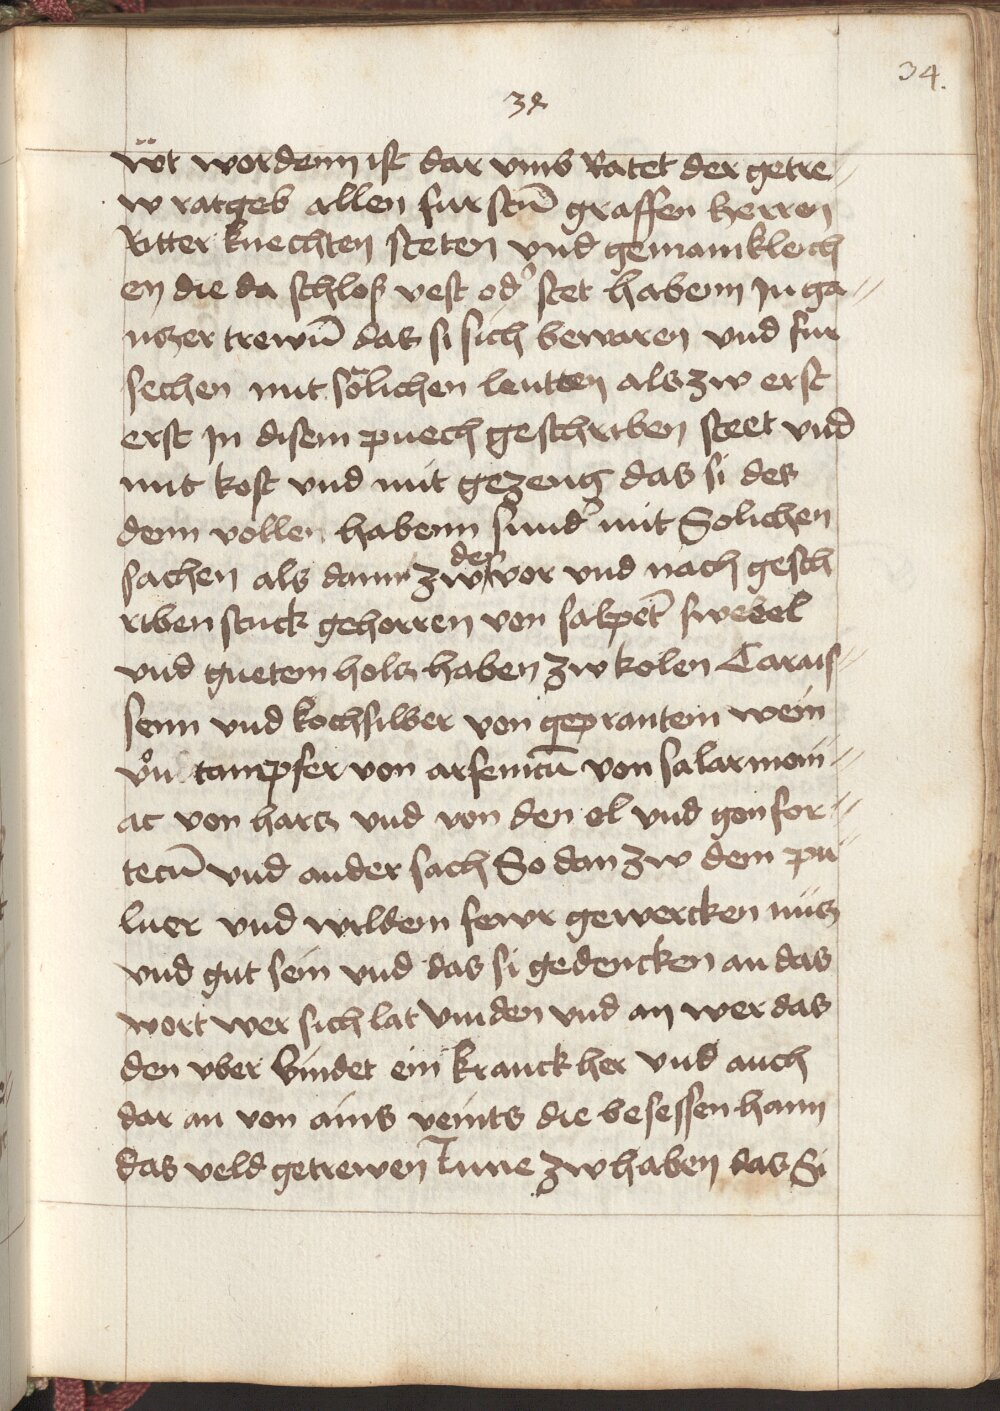 34.
34
wt wordenn ist dar vmb Ratet der getre-
w ratgeb allen furstn̄ graffen herren
Ritter knechten steten vnd gemainkleich
en die da schloß vest od' stet habenn In ga-
nczer trewn̄ das si sich bewaren vnd fur
sechen mit sölichen leutten als zw erst
erst In disem puech geschriben steet vnd
mit kost vnd mit gezeug das si des
denn vollen habenn sund' mit Solichen
sachen als dann zw den vor vnd nach gesch
riben stuck gehorren von salpet' swebel
vnd guetem holcz haben zw kolen Carais-
senn vnd kochsilber von geprantem wein
von campfer von arsenicū von salarmoni-
ac von harcz vnd von den ol vnd gon for-
tecū vnd ander sach So dan zw dem pu-
luer vnd wildem fewr gewercken nücz
vnd gut sein vnd das si gedencken an das
wort wer sich lat vinden vnd an wer das
den vber vindet ein kranck her vnd auch
dar an von ains veints die besessen hann
das veld getrewen Inne zw haben das Si